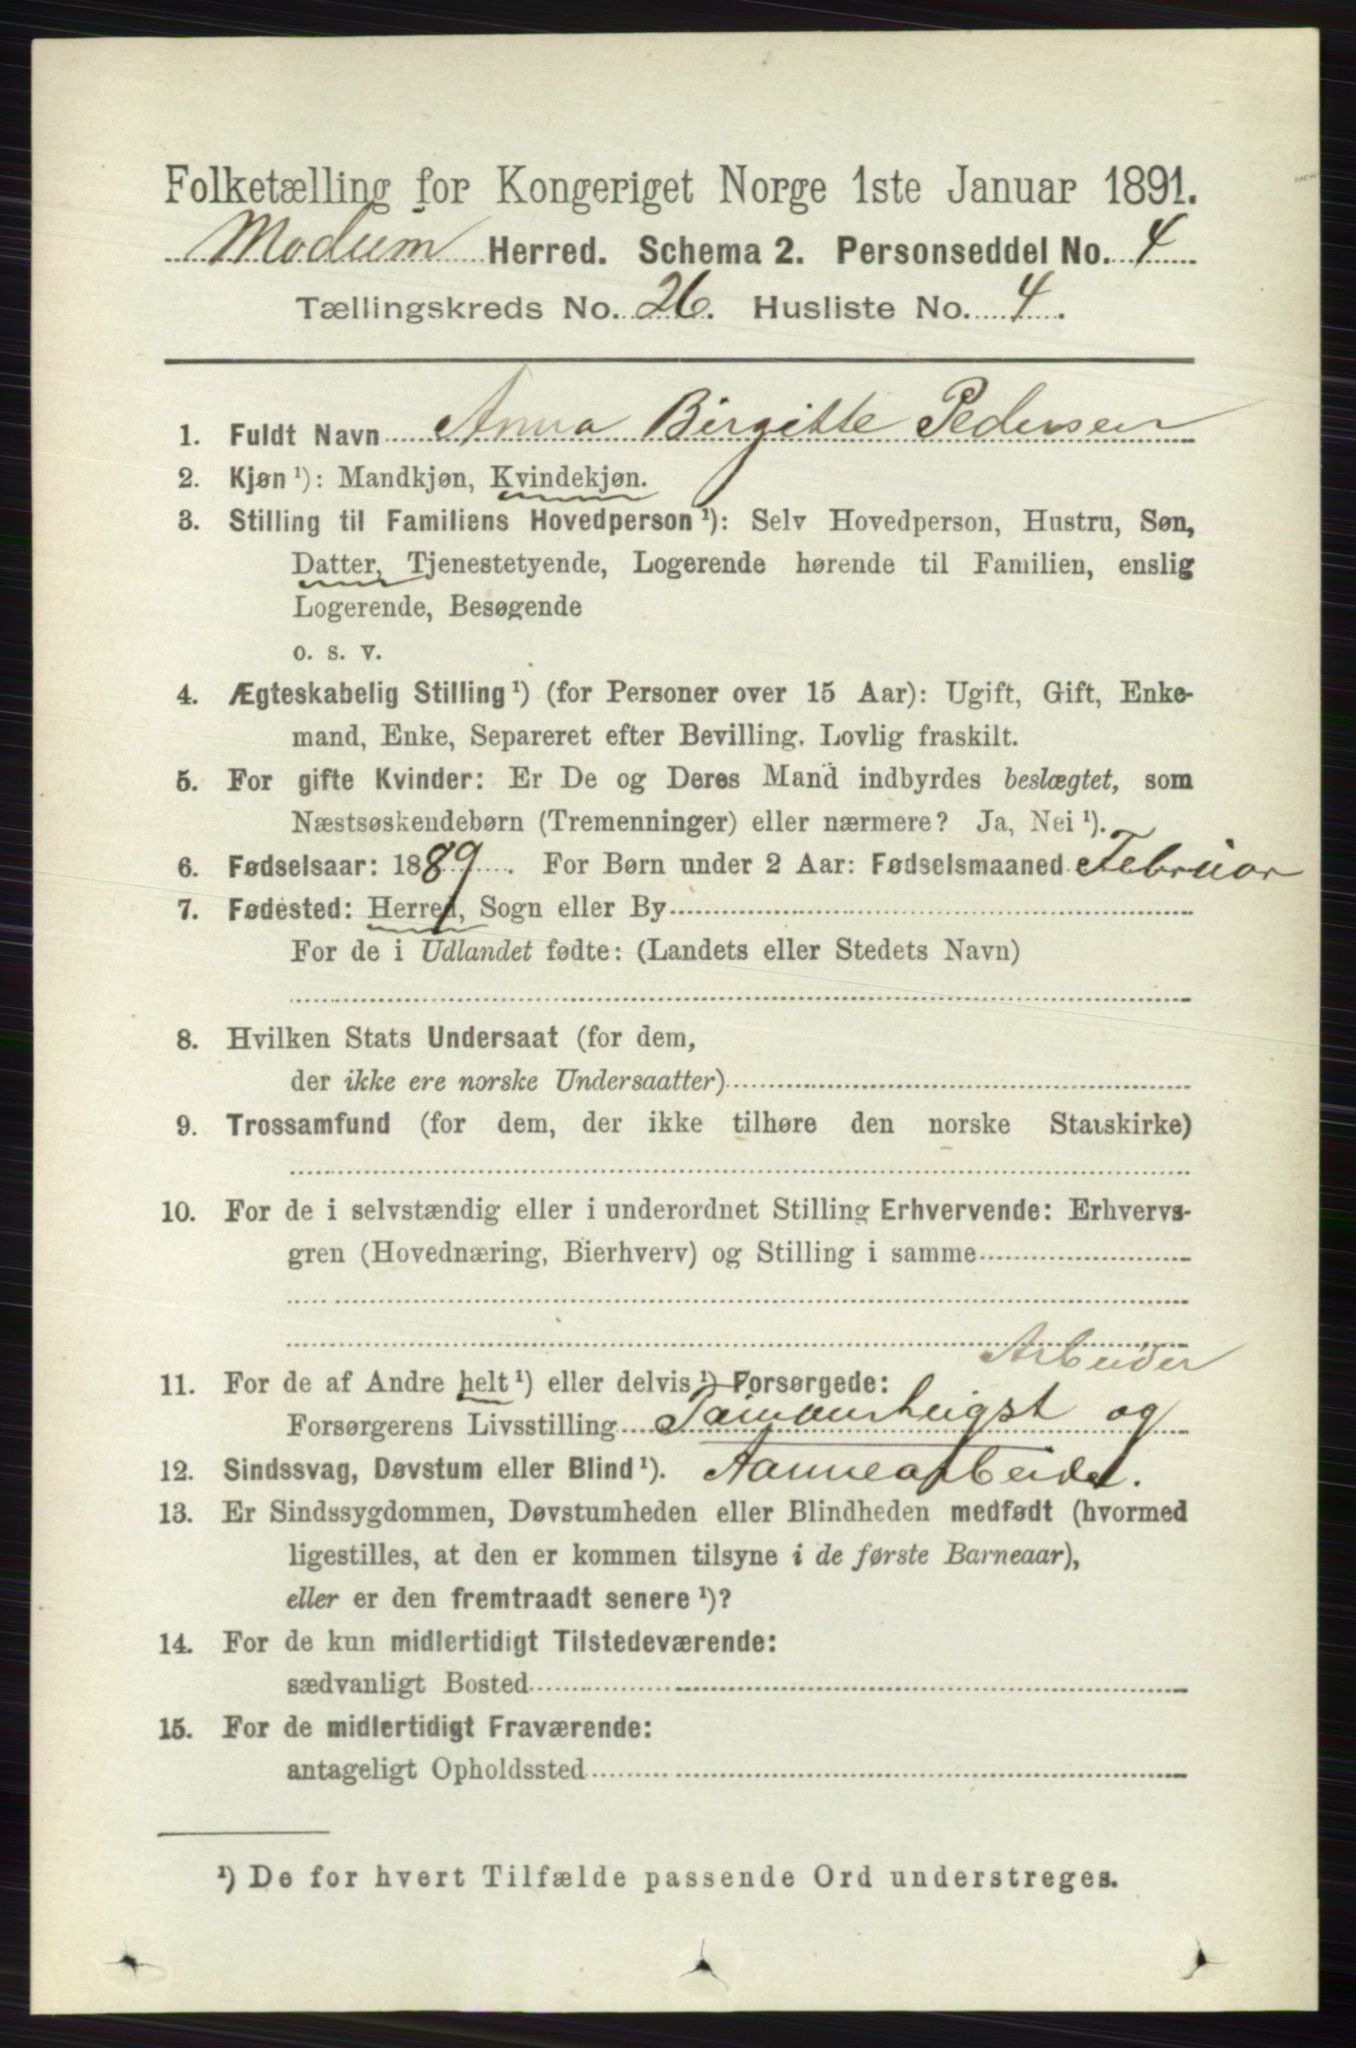 Folketælling for Kongeriget Norge 1ste Januar 1891.
Modum Herred. Schema 2. Personseddel No. 4
Tællingskreds No. 26. Husliste No. 4.
1. Fuldt Navn Anna Birgitte Pedersen
2. Kjøn ¹): Mandkjøn, Kvindekjøn.
3. Stilling til Familiens Hovedperson ¹): Selv Hovedperson, Hustru, Søn,
Datter, Tjenestetyende, Logerende hørende til Familien, enslig
Logerende, Besøgende
o. s. v.
4. Ægteskabelig Stilling ¹) (for Personer over 15 Aar): Ugift, Gift, Enke-
mand, Enke, Separeret efter Bevilling. Lovlig fraskilt.
5. For gifte Kvinder: Er De og Deres Mand indbyrdes beslægtet, som
Næstsøskendebørn (Tremenninger) eller nærmere? Ja, Nei ¹).
6. Fødselsaar: 1889. For Børn under 2 Aar: Fødselsmaaned Februar
7. Fødested: Herred, Sogn eller By
For de i Udlandet fødte: (Landets eller Stedets Navn)
8. Hvilken Stats Undersaat (for dem,
der ikke ere norske Undersaatter)
9. Trossamfund (for dem, der ikke tilhøre den norske Statskirke)
10. For de i selvstændig eller i underordnet Stilling Erhvervende: Erhvervs-
gren (Hovednæring, Bierhverv) og Stilling i samme
Arbeider
11. For de af Andre helt ¹) eller delvis ¹) Forsørgede:
Forsørgerens Livsstilling og
12. Sindssvag, Døvstum eller Blind ¹).
13. Er Sindssygdommen, Døvstumheden eller Blindheden medfødt (hvormed
ligestilles, at den er kommen tilsyne i de første Barneaar),
eller er den fremtraadt senere ¹)?
14. For de kun midlertidigt Tilstedeværende:
sædvanligt Bosted
15. For de midlertidigt Fraværende:
antageligt Opholdssted
¹) De for hvert Tilfælde passende Ord understreges.